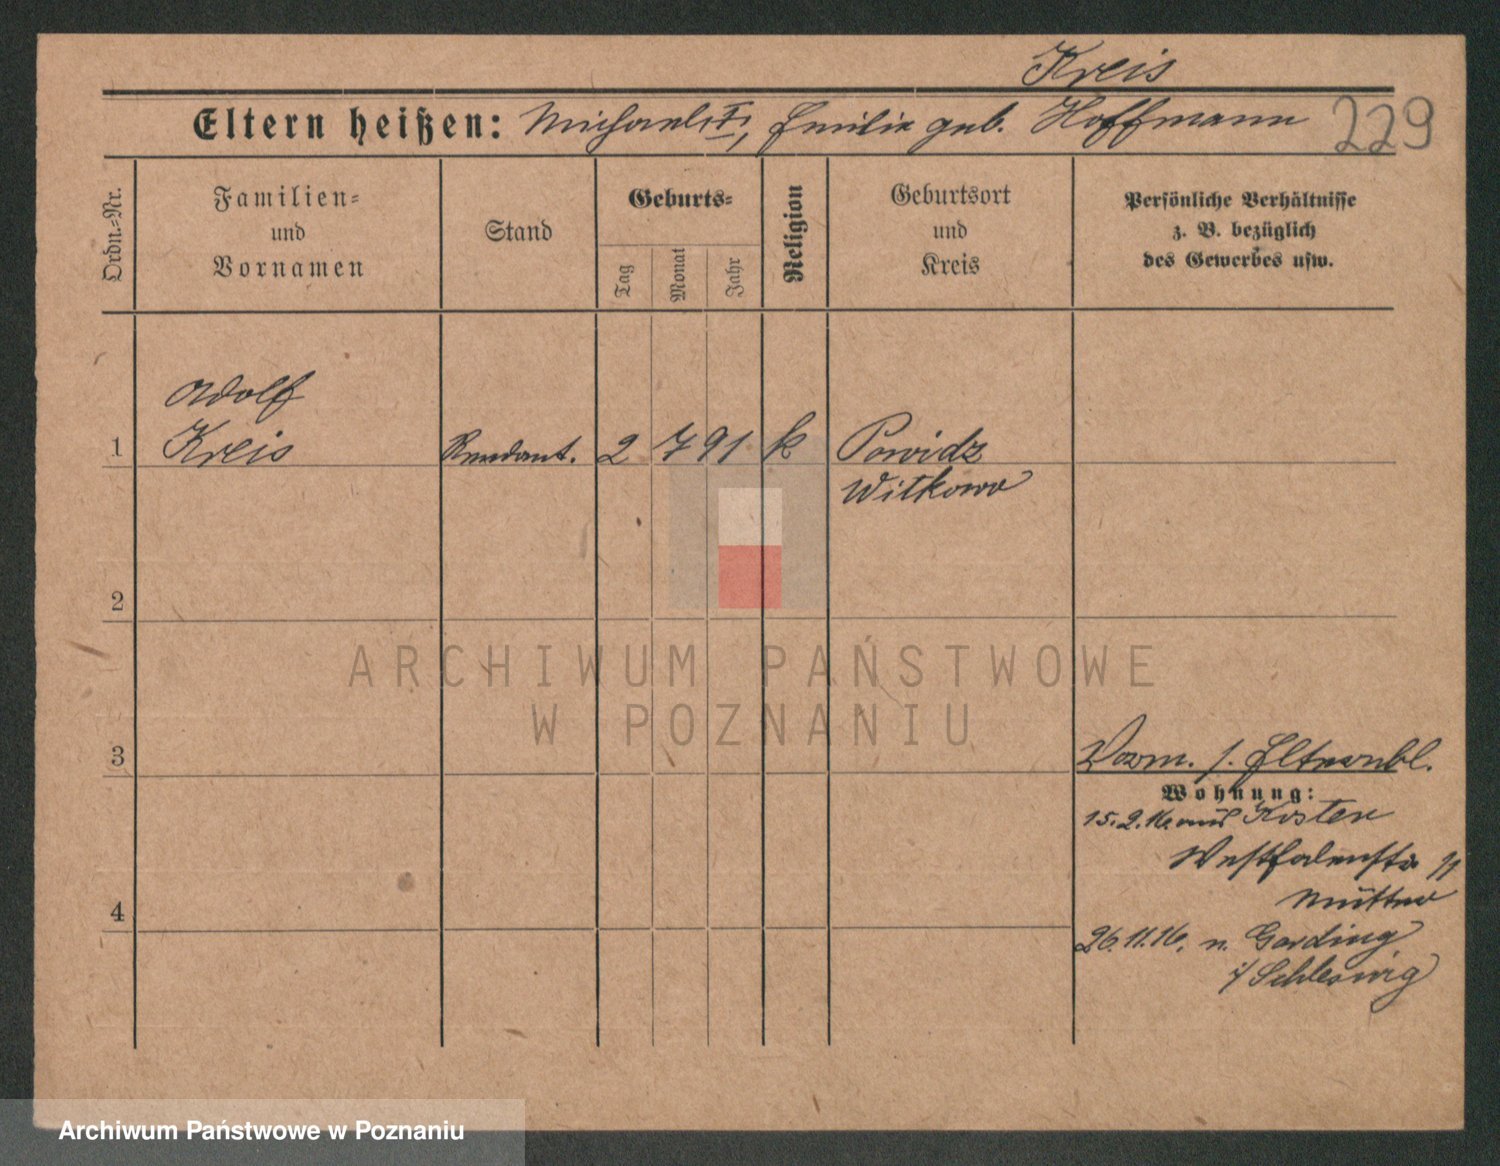 Kreis
Eltern heißen: Michael †, Emilie geb. Hoffmann 229
Ordn.-Nr.
Familien- und Vornamen
Stand
Geburts-
Tag
Monat
Jahr
Religion
Geburtsort und Kreis
Persönliche Verhältnisse z. B. bezüglich des Gewerbes usw.
Adolf
1 Kreis Rendant. 2 7 91 k Powidz
Witkowo
2
3
Vorm. s. Elternbl.
Wohnung:
15.2.16. aus Kosten
Westfalenstr.
Mutter
4
26.11.16. n. Garding
i/Schleswig
ARCHIWUM PAŃSTWOWE
W POZNANIU
Archiwum Państwowe w Poznaniu